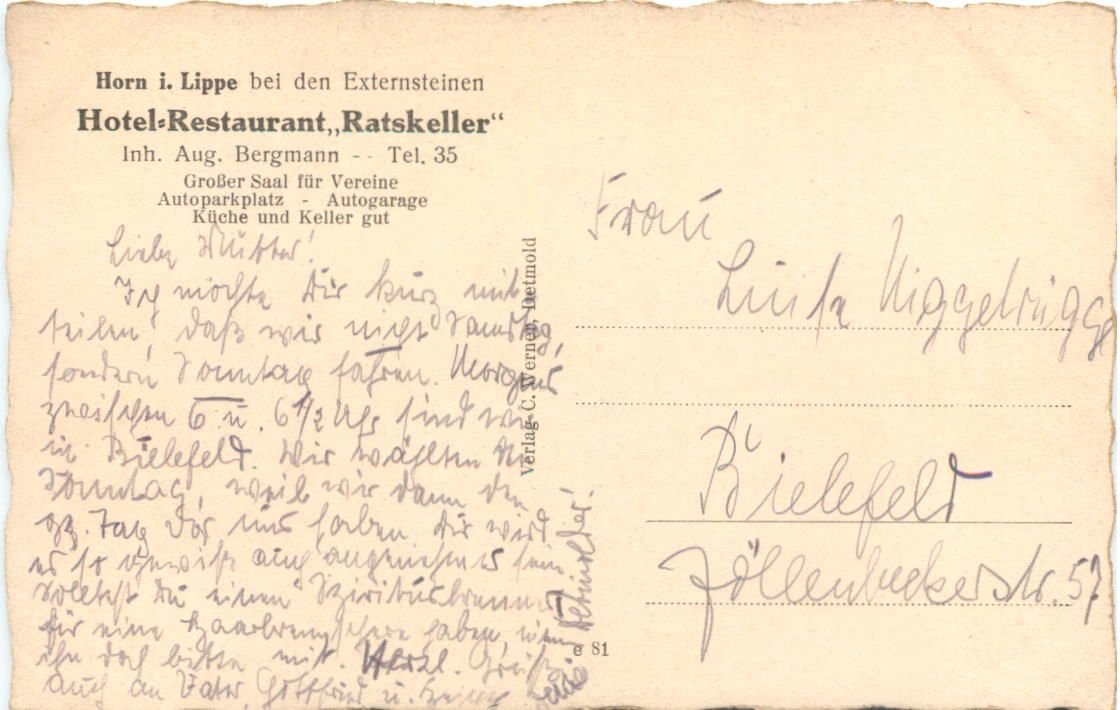 Horn i. Lippe bei den Externsteinen
Hotel-Restaurant „Ratskeller“
Inh. Aug. Bergmann -- Tel. 35
Großer Saal für Vereine
Autoparkplatz - Autogarage
Küche und Keller gut
Liebe Mutter!
Ich möchte Dir kurz mit-
teilen, daß wir nicht Samstag,
sondern Sonntag fahren. Morgens
zwischen 6 u. 6 1/2 Uhr sind wir
in Bielefeld. Wir wählten den
Sonntag, weil wir dann den
gz. Tag vor uns haben. Dir wird
es so gewiß auch angenehmer sein.
Solltest Du einen Spiritusbrenner
für eine haben, nimm
ihn doch bitte mit. Herzl. Grüße
auch an Vater, Gottfried u.
Verlag C. Werner, Detmold
e 81
Frau
Luise Niggebrügge
Bielefeld
Jöllenbeckerstr. 57